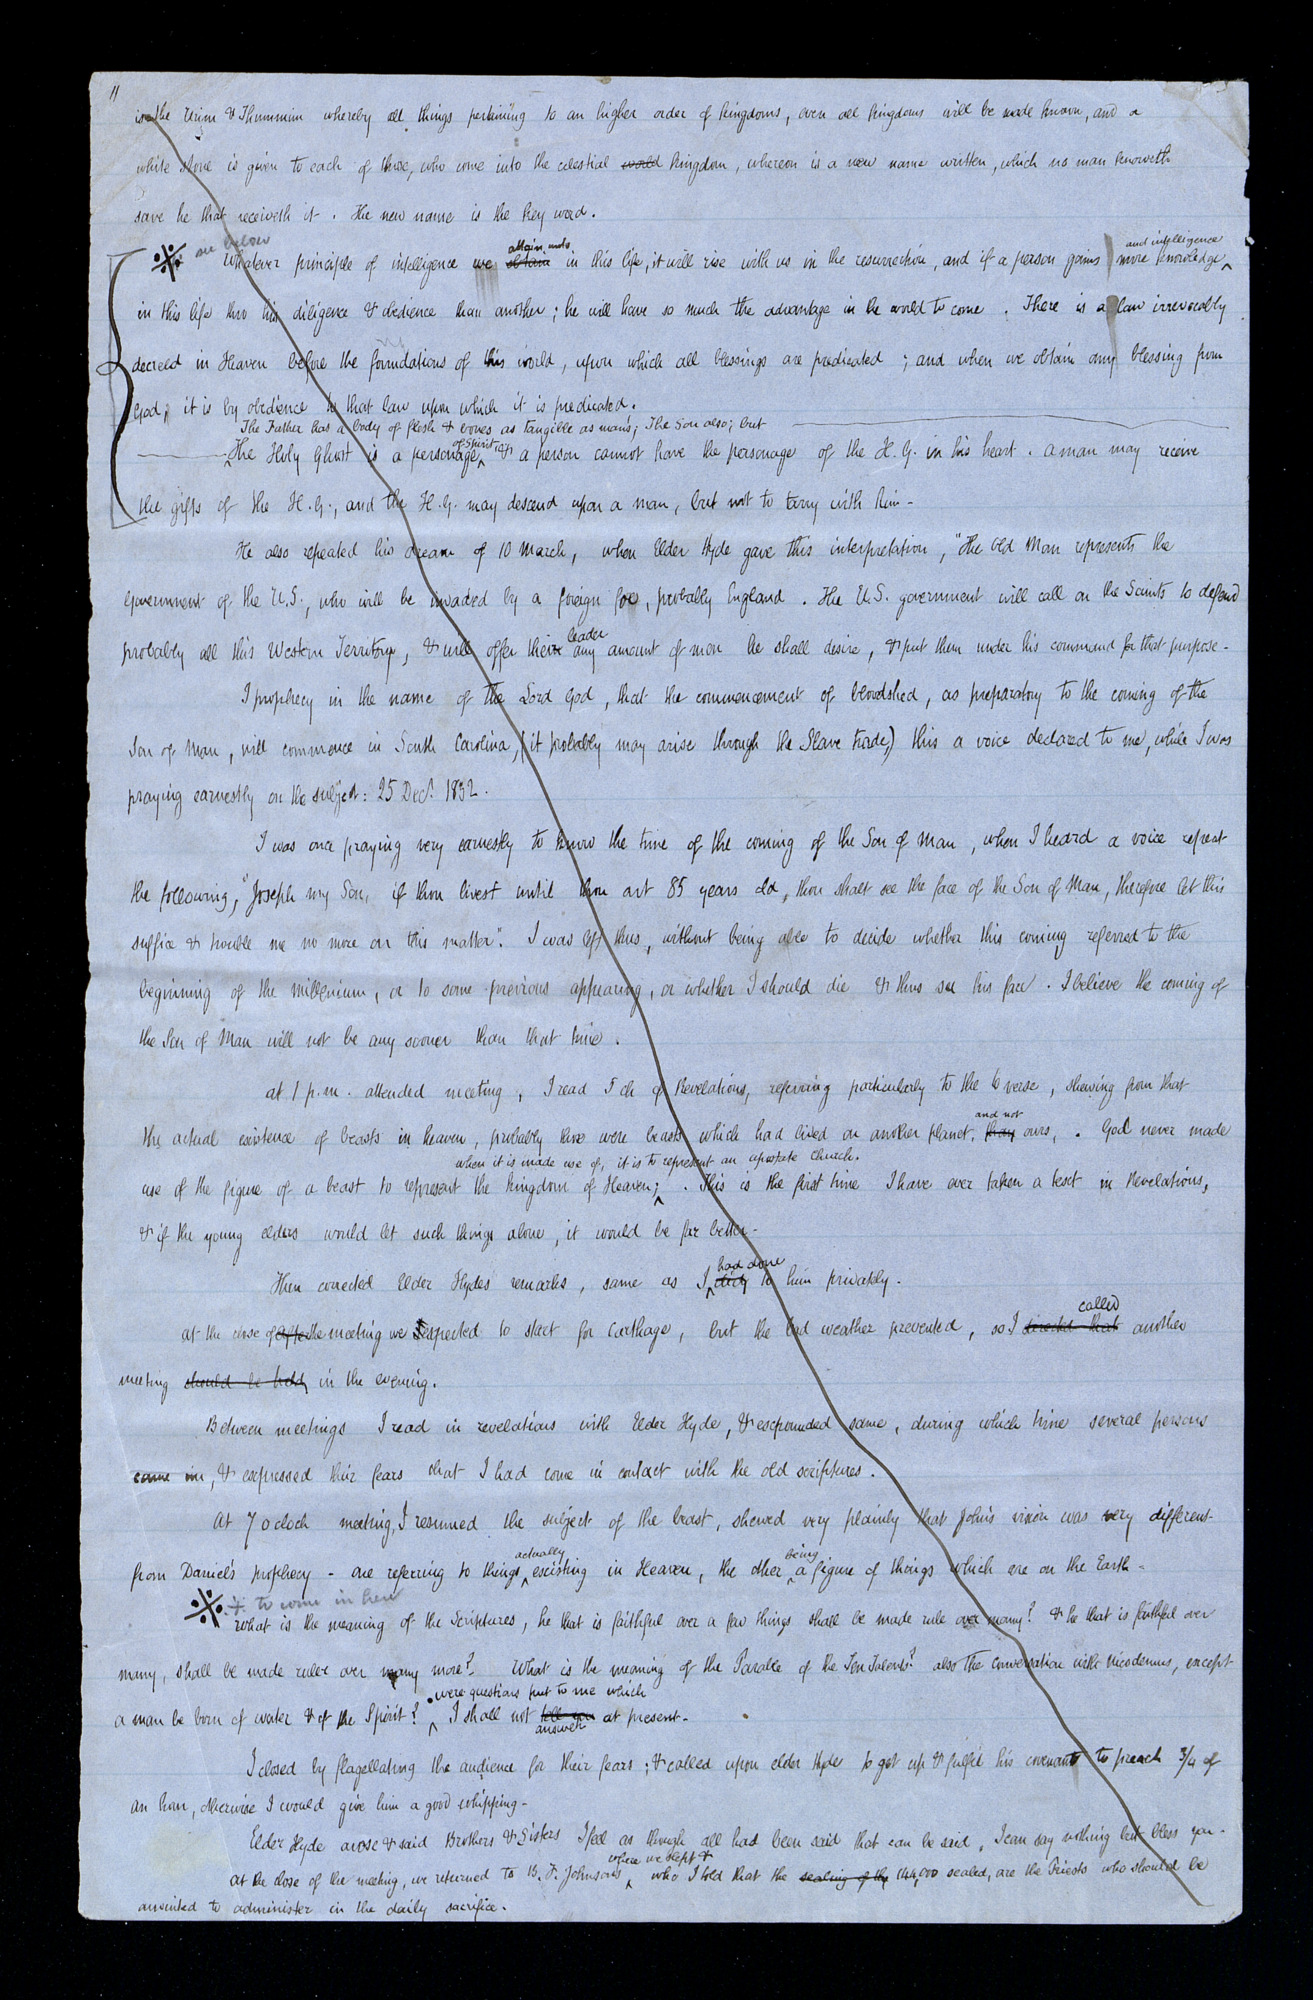 11
is the Urim & Thummim whereby all things pertaining to an higher order of kingdoms, even all kingdoms will be made known, and a
white stone is given to each of those, who come into the celestial world kingdom, whereon is a new name written, which no man knoweth
save he that receiveth it. The new name is the key word.
see below
attain unto
and intelligence
Whatever principle of intelligence we obtain in this life, it will rise with us in the resurrection, and if a person gains more knowledge
in this life thro his diligence & obedience than another; he will have so much the advantage in the world to come. There is a law irrevocably
decreed in Heaven before the foundations of this world, upon which all blessings are predicated; and when we obtain any blessing from
God, it is by obedience to that law upon which it is predicated.
The Father has a body of flesh & bones as tangible as mans; The Son also; but
of Spirit
The Holy Ghost is a personage, & a person cannot have the personage of the H. G. in his heart. a man may receive
the gifts of the H. G., and the H. G. may descend upon a man, but not to tarry with him-
He also repeated his dream of 10 March, when Elder Hyde gave this interpretation, "The Old Man represents the
government of the U.S., who will be invaded by a foreign foe, probably England. The U.S. government will call on the Saints to defend
leader
probably all this Western Territory, & will offer their any amount of men he shall desire, & put them under his command for that purpose-
I prophecy in the name of the Lord God, that the commencement of bloodshed, as preparatory to the coming of the
Son of Man, will commence in South Carolina, (it probably may arise through the Slave trade) this a voice declared to me, while I was
praying earnestly on the subject: 25 Decr. 1832.
I was once praying very earnestly to know the time of the coming of the Son of Man, when I heard a voice repeat
the following, "Joseph my Son, if thou livest until thou art 85 years old, thou shalt see the face of the Son of Man, therefore let this
suffice & trouble me no more on this matter". I was left thus, without being able to decide whether this coming referred to the
beginning of the millenium, or to some previous appearing, or whether I should die & thus see his face. I believe the coming of
the Son of Man will not be any sooner than that time.
at 1 p.m. attended meeting, I read 5 ch of Revelations, referring particularly to the 6 verse, shewing from that
and not
the actual existence of beasts in heaven, probably those were beasts which had lived on another planet, than ours,. God never made
when it is made use of, it is to represent an apostate church.
use of the figure of a beast to represent the kingdom of Heaven; . This is the first time I have ever taken a text in Revelations,
& if the young elders would let such things alone, it would be far better-
had done
Then corrected Elder Hydes remarks, same as I did to him privately.
called
at the close of after the meeting we expected to start for Carthage, but the bad weather prevented, so I directed that another
meeting should be held, in the evening.
Between meetings I read in revelations with Elder Hyde, & expounded same, during which time several persons
came in, & expressed their fears that I had come in contact with the old scriptures.
At 7 o clock meeting, I resumed the subject of the beast, shewed very plainly that John's vision was very different
actually
being
from Daniel's prophecy - one referring to things existing in Heaven, the other a figure of things which are on the Earth-
to come in here
What is the meaning of the Scriptures, he that is faithful over a few things shall be made rule over many? & he that is faithful over
many, shall be made ruler over many more? What is the meaning of the Parable of the Ten Talents? also the conversation with Nicodemus, except
were questions put to me which
a man be born of water & of the Spirit? I shall not tell you at present-
answer
I closed by flagellating the audience for their fears; & called upon elder Hyde to get up & fulfil his covenant to preach 3/4 of
an hour, otherwise I would give him a good whipping-
Elder Hyde arose & said Brothers & Sisters I feel as though all had been said that can be said, I can say nothing but bless you-
where we slept &
at the close of the meeting, we returned to B. F. Johnsons, who I told that the sealing of the 144,000 sealed, are the Priests who should be
anointed to administer in the daily sacrifice.